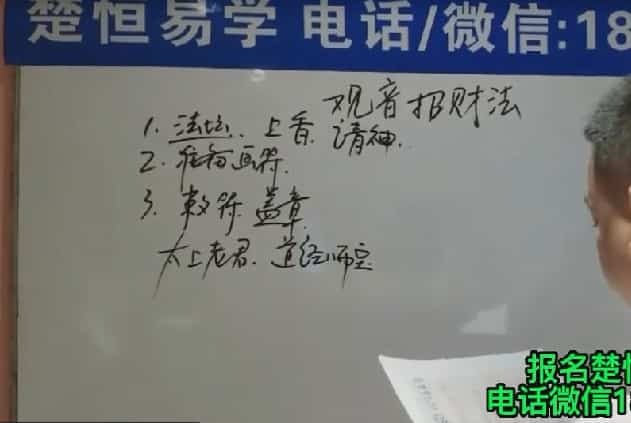 楚恒易学 电话/微信:18
观音招财法
1. 法坛. 上香 请神.
2. 画符.
3. 敕符 盖章
太上老君. 道经师宝
报名楚恒
电话微信18